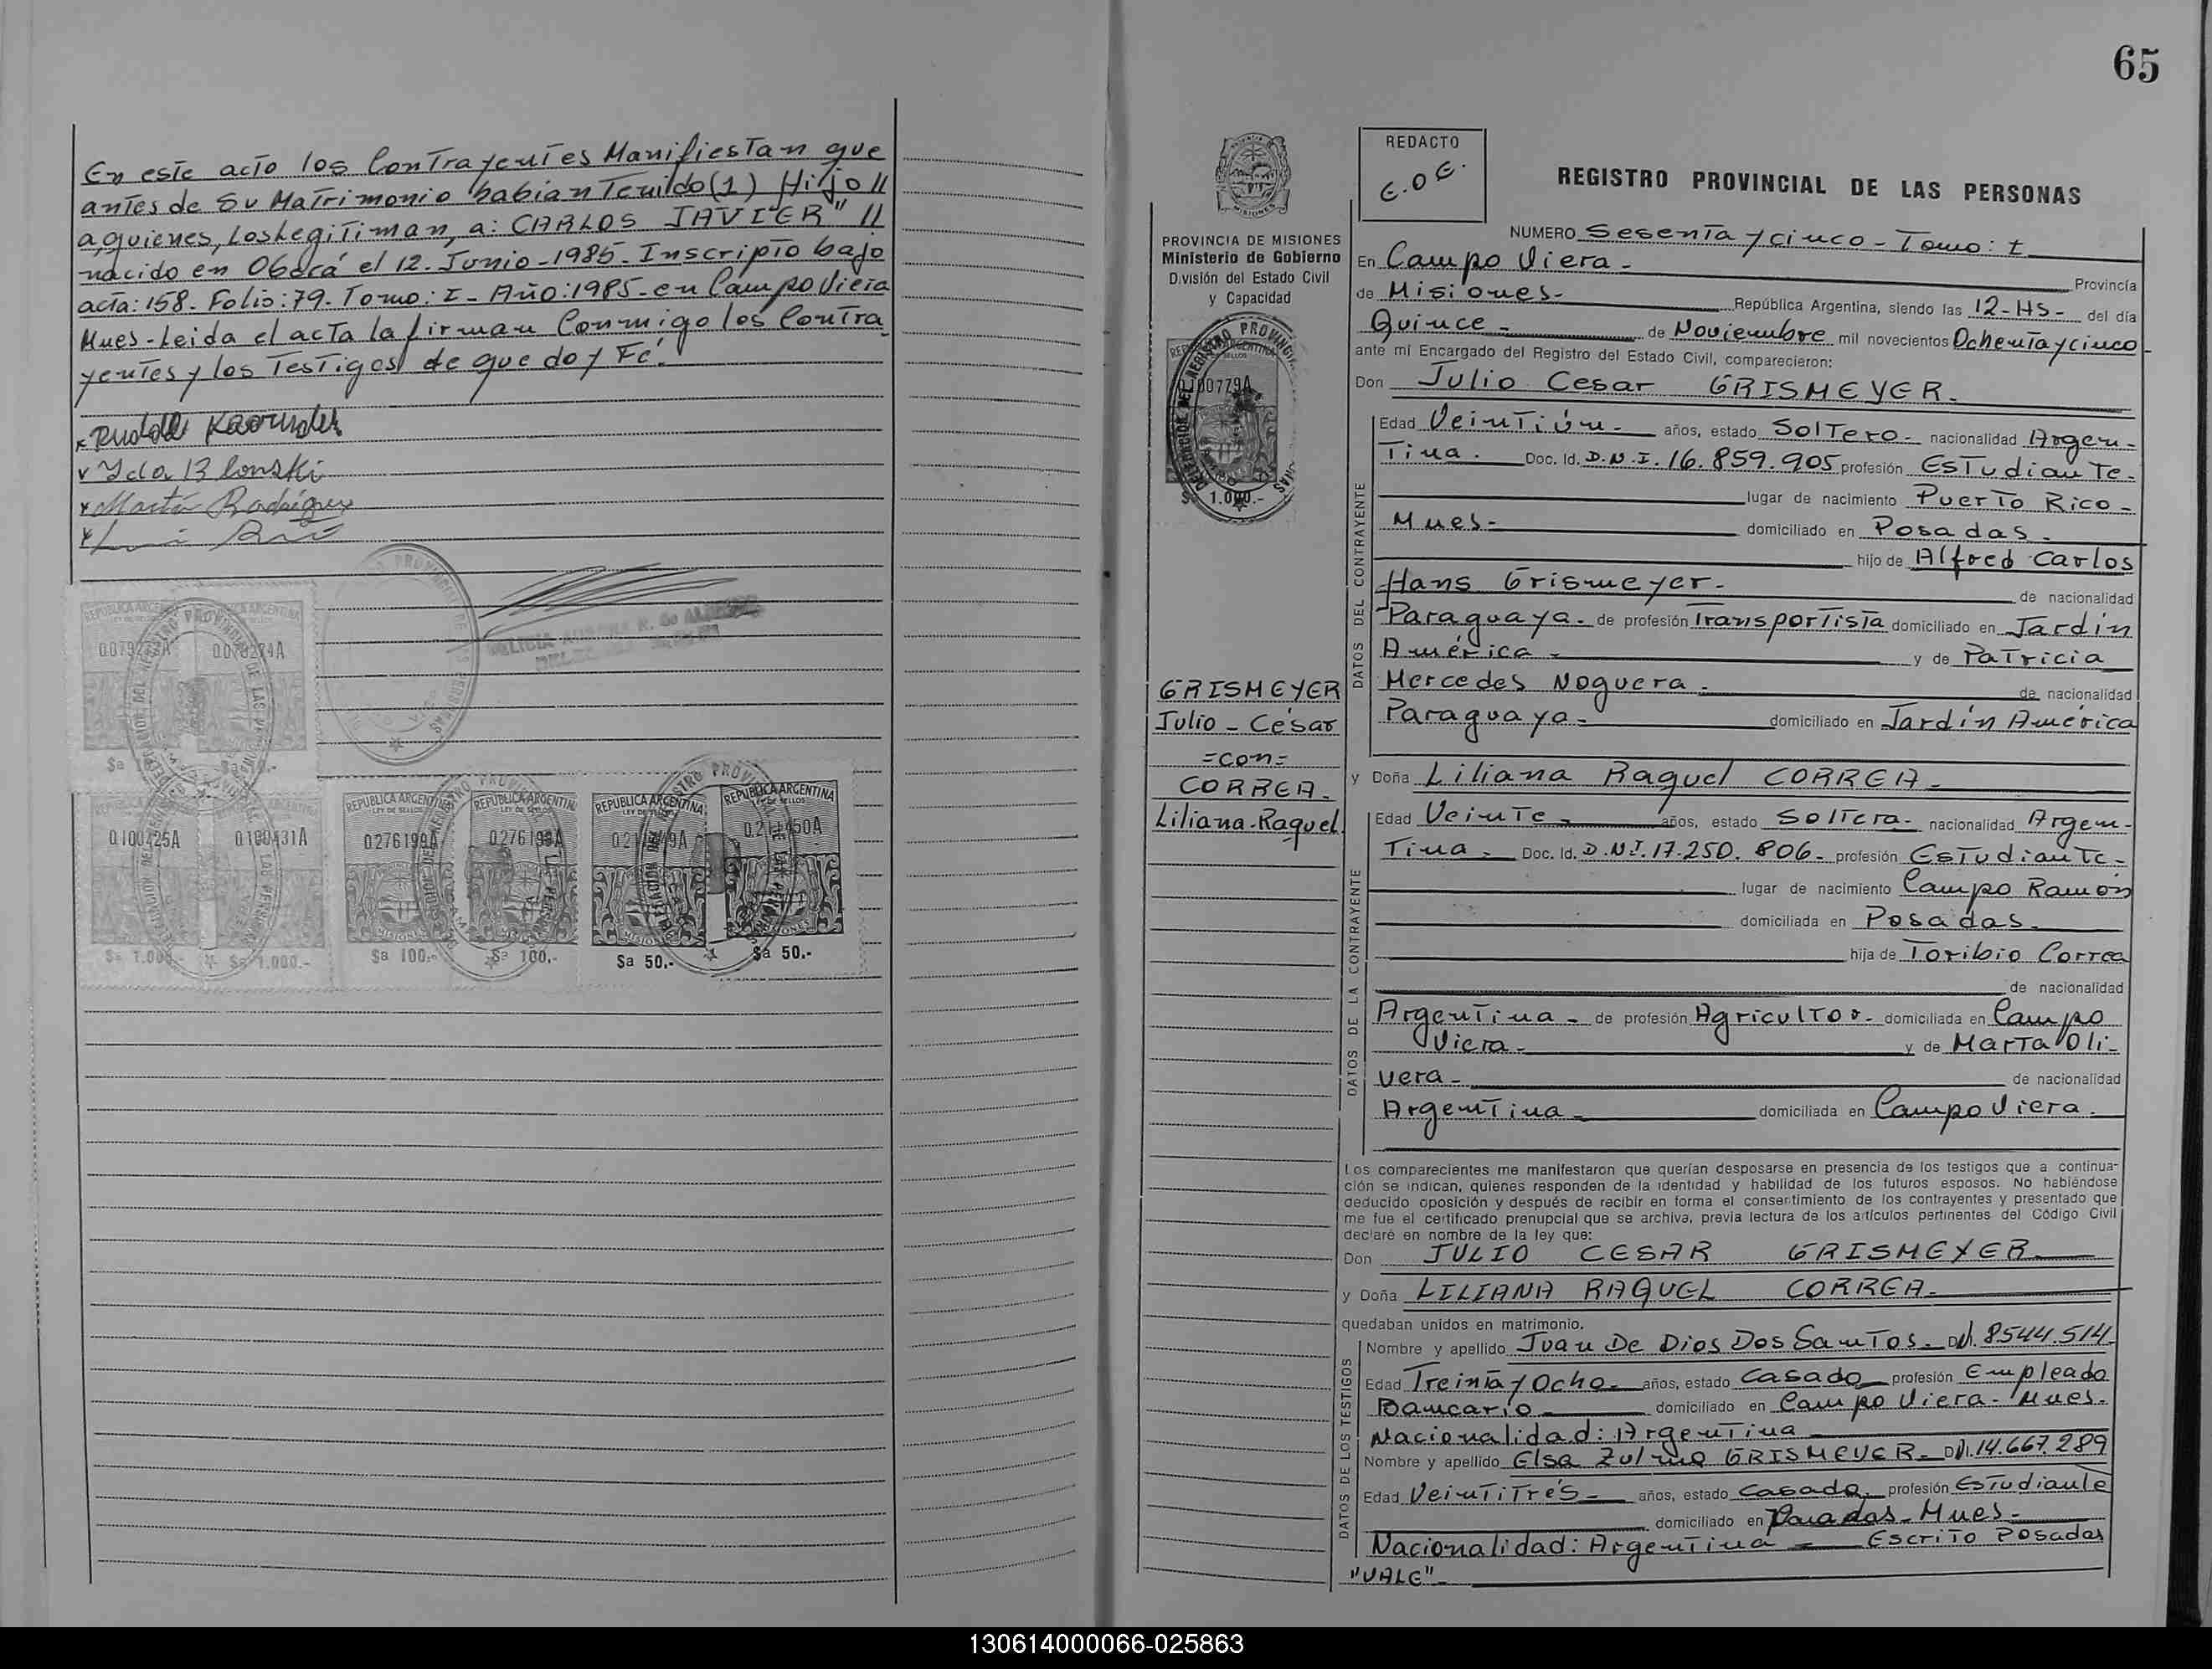 En este acto los Contrayentes Manifiestan que
antes de Su Matrimonio habian Tenido (1) Hijo //
a quienes, Los Legitiman, a: CARLOS JAVIER" //
nacido en Oberá el 12. Junio-1985- Inscripto bajo
acta: 158. Folio: 79. Tomo: I- Año: 1985- en Campo Viera
Mnes- Leida el acta la firman Conmigo los Contra
yentes y los Testigos de que doy Fé.
Yda Blonski
Martín Rodríguez
REPUBLICA ARGENTINA
LEY DE SELLOS
0100425A 0100431A 0276199A 0276198A
$a 1.000.- $a 1.000.- $a 100.- $a 100.- $a 50.- $a 50.-
65
REDACTO
E.O.E.
REGISTRO PROVINCIAL DE LAS PERSONAS
PROVINCIA DE MISIONES
Ministerio de Gobierno
División del Estado Civil
y Capacidad
$a 1.000.-
GRISMEYER
Julio - César
=con=
CORREA-
Liliana-Raquel
NUMERO Sesenta y cinco - Tomo: I
En Campo Viera - Provincia
de Misiones- República Argentina, siendo las 12-HS- del día
Quince - de Noviembre mil novecientos Ochenta y cinco-
ante mi Encargado del Registro del Estado Civil, comparecieron:
Don Julio Cesar GRISMEYER.
DATOS DEL CONTRAYENTE
Edad Veintiún- años, estado Soltero- nacionalidad Argen-
tina. Doc. Id. D.N.I. 16.859.905 profesión Estudiante-
lugar de nacimiento Puerto Rico-
Mnes- domiciliado en Posadas-
hijo de Alfred Carlos
Hans Grismeyer- de nacionalidad
Paraguaya- de profesión Transportista domiciliado en Jardín
América - y de Patricia
Mercedes Noguera - de nacionalidad
Paraguaya- domiciliado en Jardín América
y Doña Liliana Raquel CORREA-
DATOS DE LA CONTRAYENTE
Edad Veinte - años, estado Soltera- nacionalidad Argen-
tina - Doc. Id. D.N.I. 17.250.806- profesión Estudiante-
lugar de nacimiento Campo Ramón
domiciliada en Posadas-
hija de Toribio Correa
de nacionalidad
Argentina - de profesión Agricultor- domiciliada en Campo
Viera- y de Marta Oli-
vera- de nacionalidad
Argentina - domiciliada en Campo Viera.
Los comparecientes me manifestaron que querían desposarse en presencia de los testigos que a continua-
ción se indican, quienes responden de la identidad y habilidad de los futuros esposos. No habiéndose
deducido oposición y después de recibir en forma el consentimiento de los contrayentes y presentado que
me fue el certificado prenupcial que se archiva, previa lectura de los artículos pertinentes del Código Civil
declaré en nombre de la ley que:
Don JULIO CESAR GRISMEYER
y Doña LILIANA RAQUEL CORREA-
quedaban unidos en matrimonio.
DATOS DE LOS TESTIGOS
Nombre y apellido Juan De Dios Dos Santos- DNI. 8544.514
Edad Treinta y Ocho- años, estado Casado profesión Empleado
Bancario domiciliado en Campo Viera- Mnes.
Nacionalidad: Argentina
Nombre y apellido Elsa Zulma GRISMEYER- DNI. 14.667.289
Edad Veintitrés- años, estado Casada profesión Estudiante
domiciliado en Posadas- Mnes-
Nacionalidad: Argentina - Escrito Posadas
"VALE"-
130614000066-025863